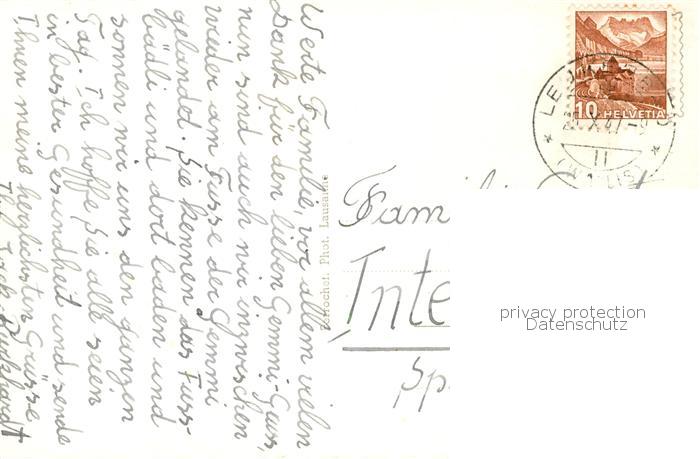 Werte Familie, vor allem vielen
Dank für den lieben Gemmi-Gruss,
nun sind auch wir inzwischen
wieder am Fusse der Gemmi
gelandet. Sie kennen das Fuss-
bädli und dort baden und
sonnen wir uns den ganzen
Tag. Ich hoffe Sie alle seien
in bester Gesundheit und sende
Ihnen meine herzlichsten Grüsse
Ihr Jack Burkhardt
Perrochet. Phot. Lausanne
10 HELVETIA
II
Famili
Inte
Sp
privacy protection
Datenschutz